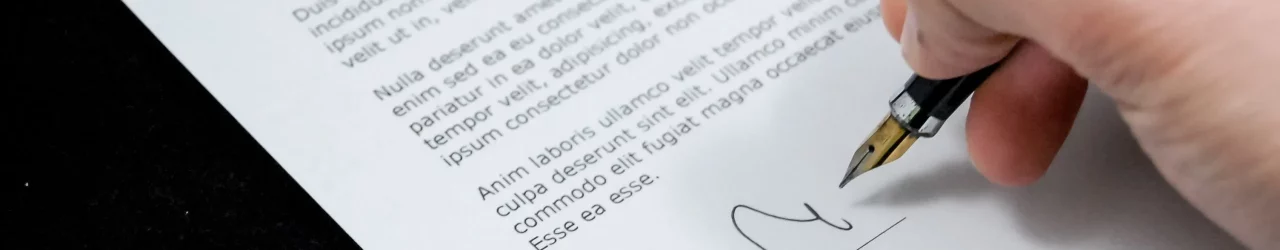 Duis
incididu
ipsum non
velit ut in, ve
Nulla deserunt ame
enim sed ea eu consect
pariatur in ea dolor velit,
tempor velit, adipisicing, exc
ipsum consectetur dolor non occ
Anim laboris ullamco velit tempor veli
culpa deserunt sint elit. Ullamco minim c
commodo elit fugiat magna occaecat eius
Esse ea esse.